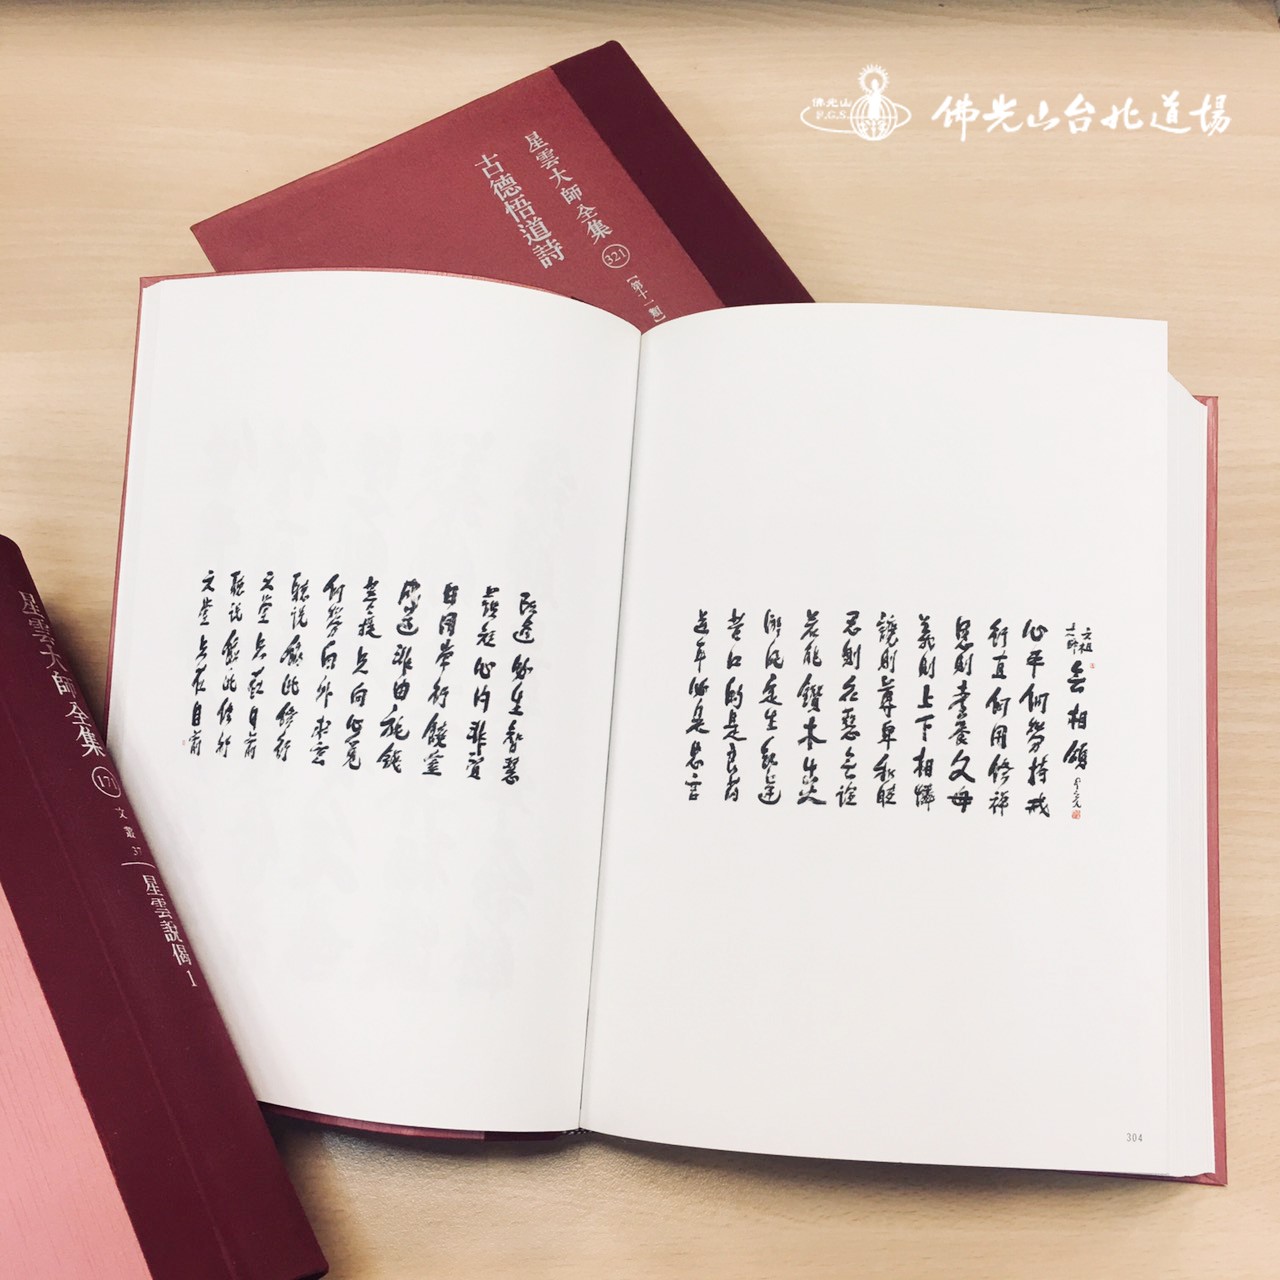 佛光山
F.G.S.
佛光山台北道場
星雲大師全集 321 【第十一類】
古德悟道詩
六祖
大師
無相頌
心平何勞持戒
行直何用修禪
恩則孝養父母
義則上下相憐
讓則尊卑和睦
忍則眾惡無諠
若能鑽木出火
淤泥定生紅蓮
苦口的是良藥
逆耳必是忠言
304
改過必生智慧
護短心內非賢
日用常行饒益
成道非由施錢
菩提只向心覓
何勞向外求玄
聽說依此修行
天堂只在目前
聽說依此修行
天堂只在目前
星雲大師全集 171 文叢 37 星雲說偈 1